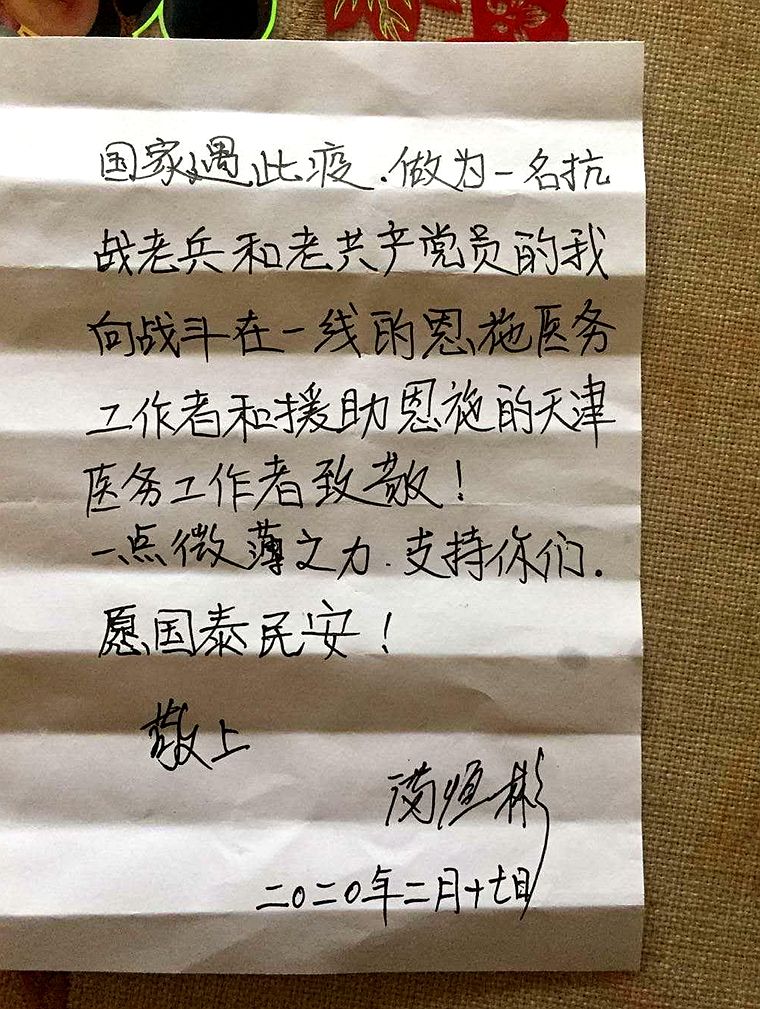 国家遇此疫.做为一名抗
战老兵和老共产党员的我
向战斗在一线的恩施医务
工作者和援助恩施的天津
医务工作者致敬！
一点微薄之力.支持你们.
愿国泰民安！
敬上
满恒彬
二〇二〇年二月十七日